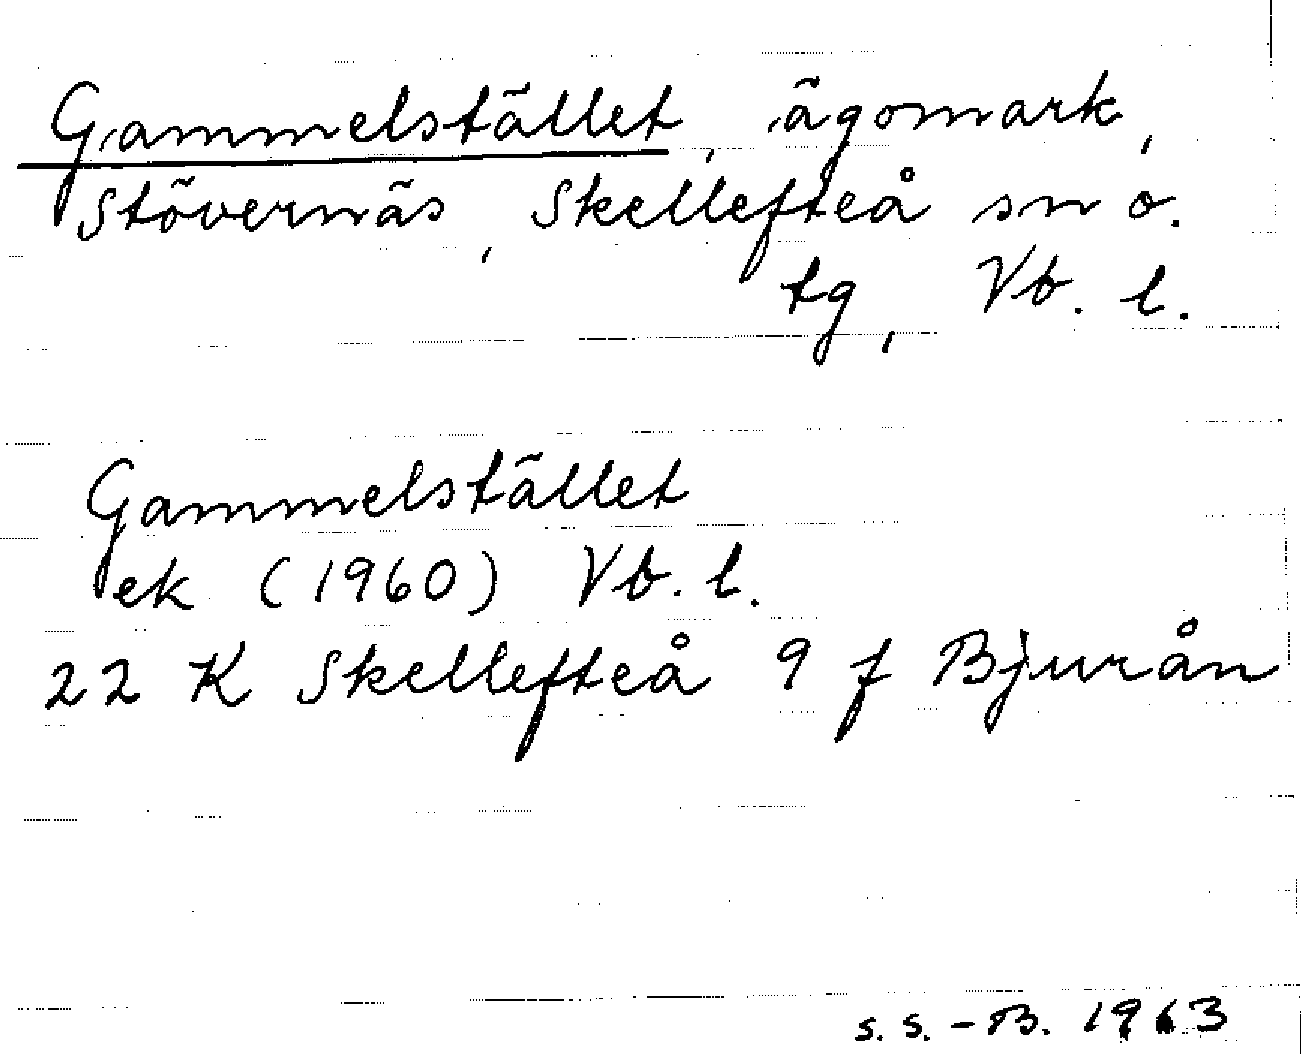 Gammelstället, ägomark,
Stövernäs, Skellefteå sn o.
tg, Vb. l.
Gammelstället
ek (1960) Vb. l.
22 K Skellefteå 9 f Bjurån
S. S. - B. 1963